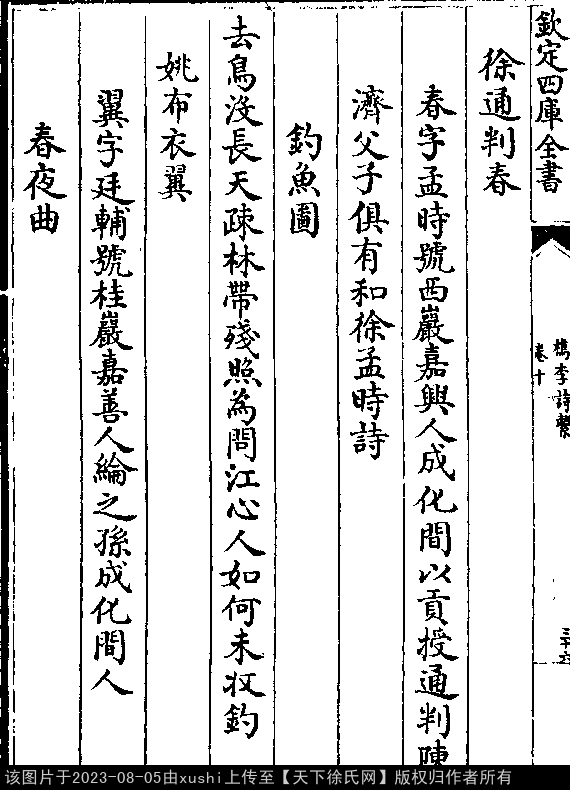 欽定四庫全書
檇李詩繫
卷十
三十六
徐通判春
春字孟時號西巖嘉興人成化間以貢授通判陳
濟父子俱有和徐孟時詩
釣魚圖
去鳥没長天疎林帶殘照為問江心人如何未収釣
姚布衣翼
翼字廷輔號桂巖嘉善人綸之孫成化間人
春夜曲
该图片于2023-08-05由xushi上传至【天下徐氏网】版权归作者所有